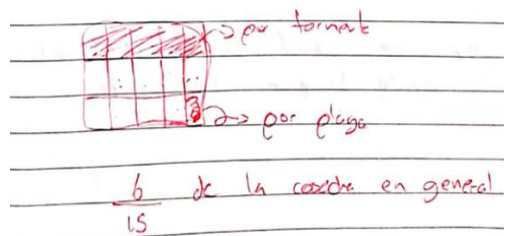 por tormenta
por plaga
6/15 de la cosecha en general